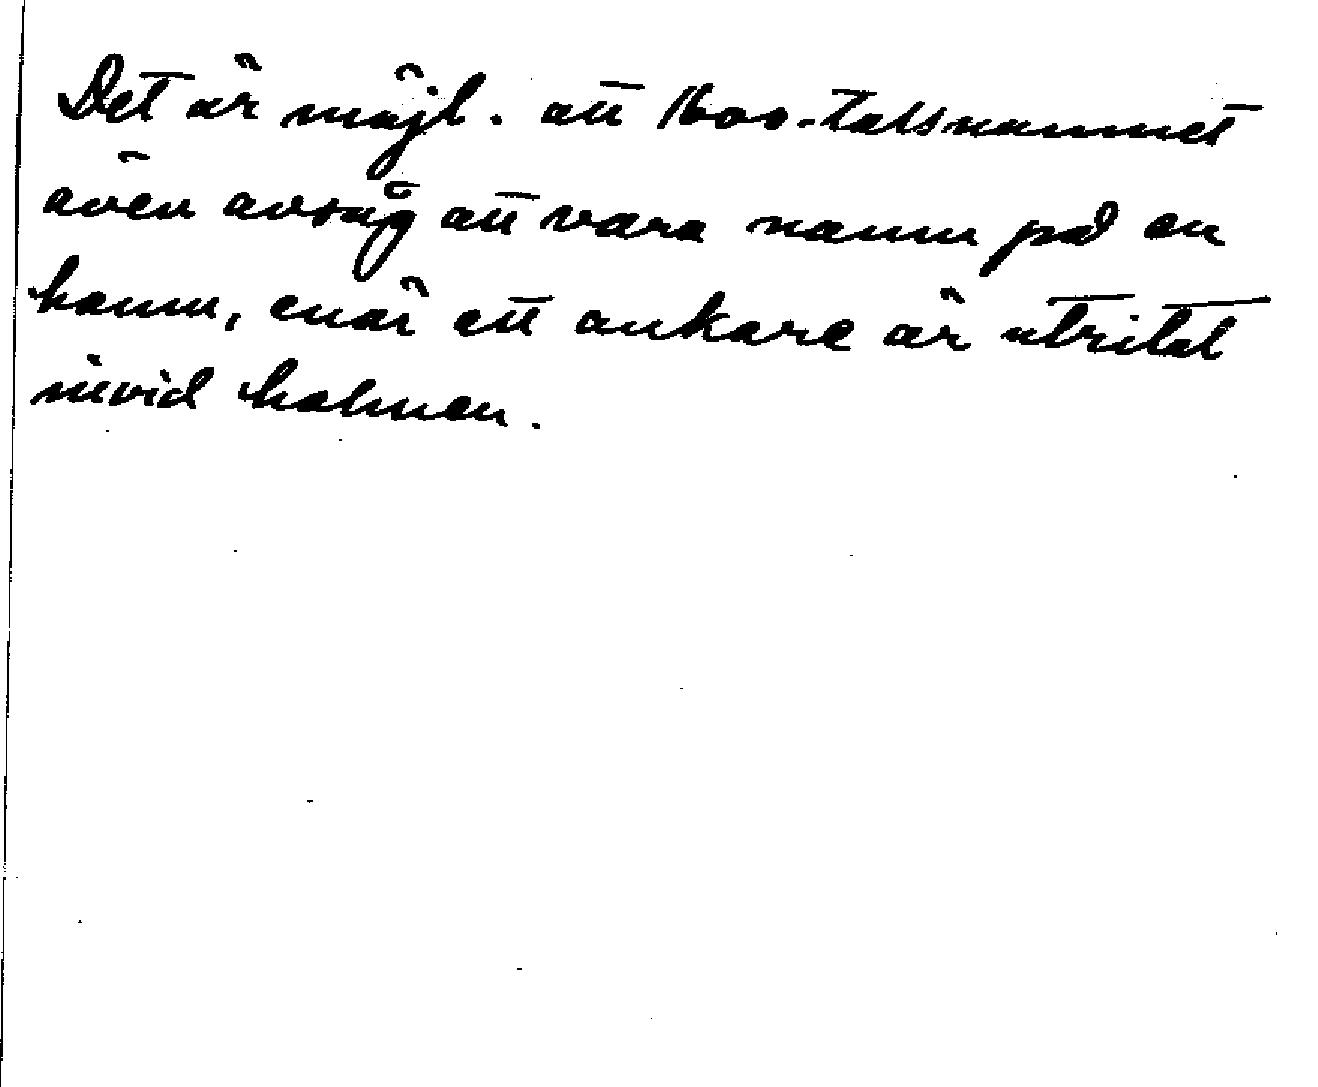 Det är möjl. att 1600-talsnamnet
även avsåg att vara namn på en
hamn, enär ett ankare är utritat
invid holmen.